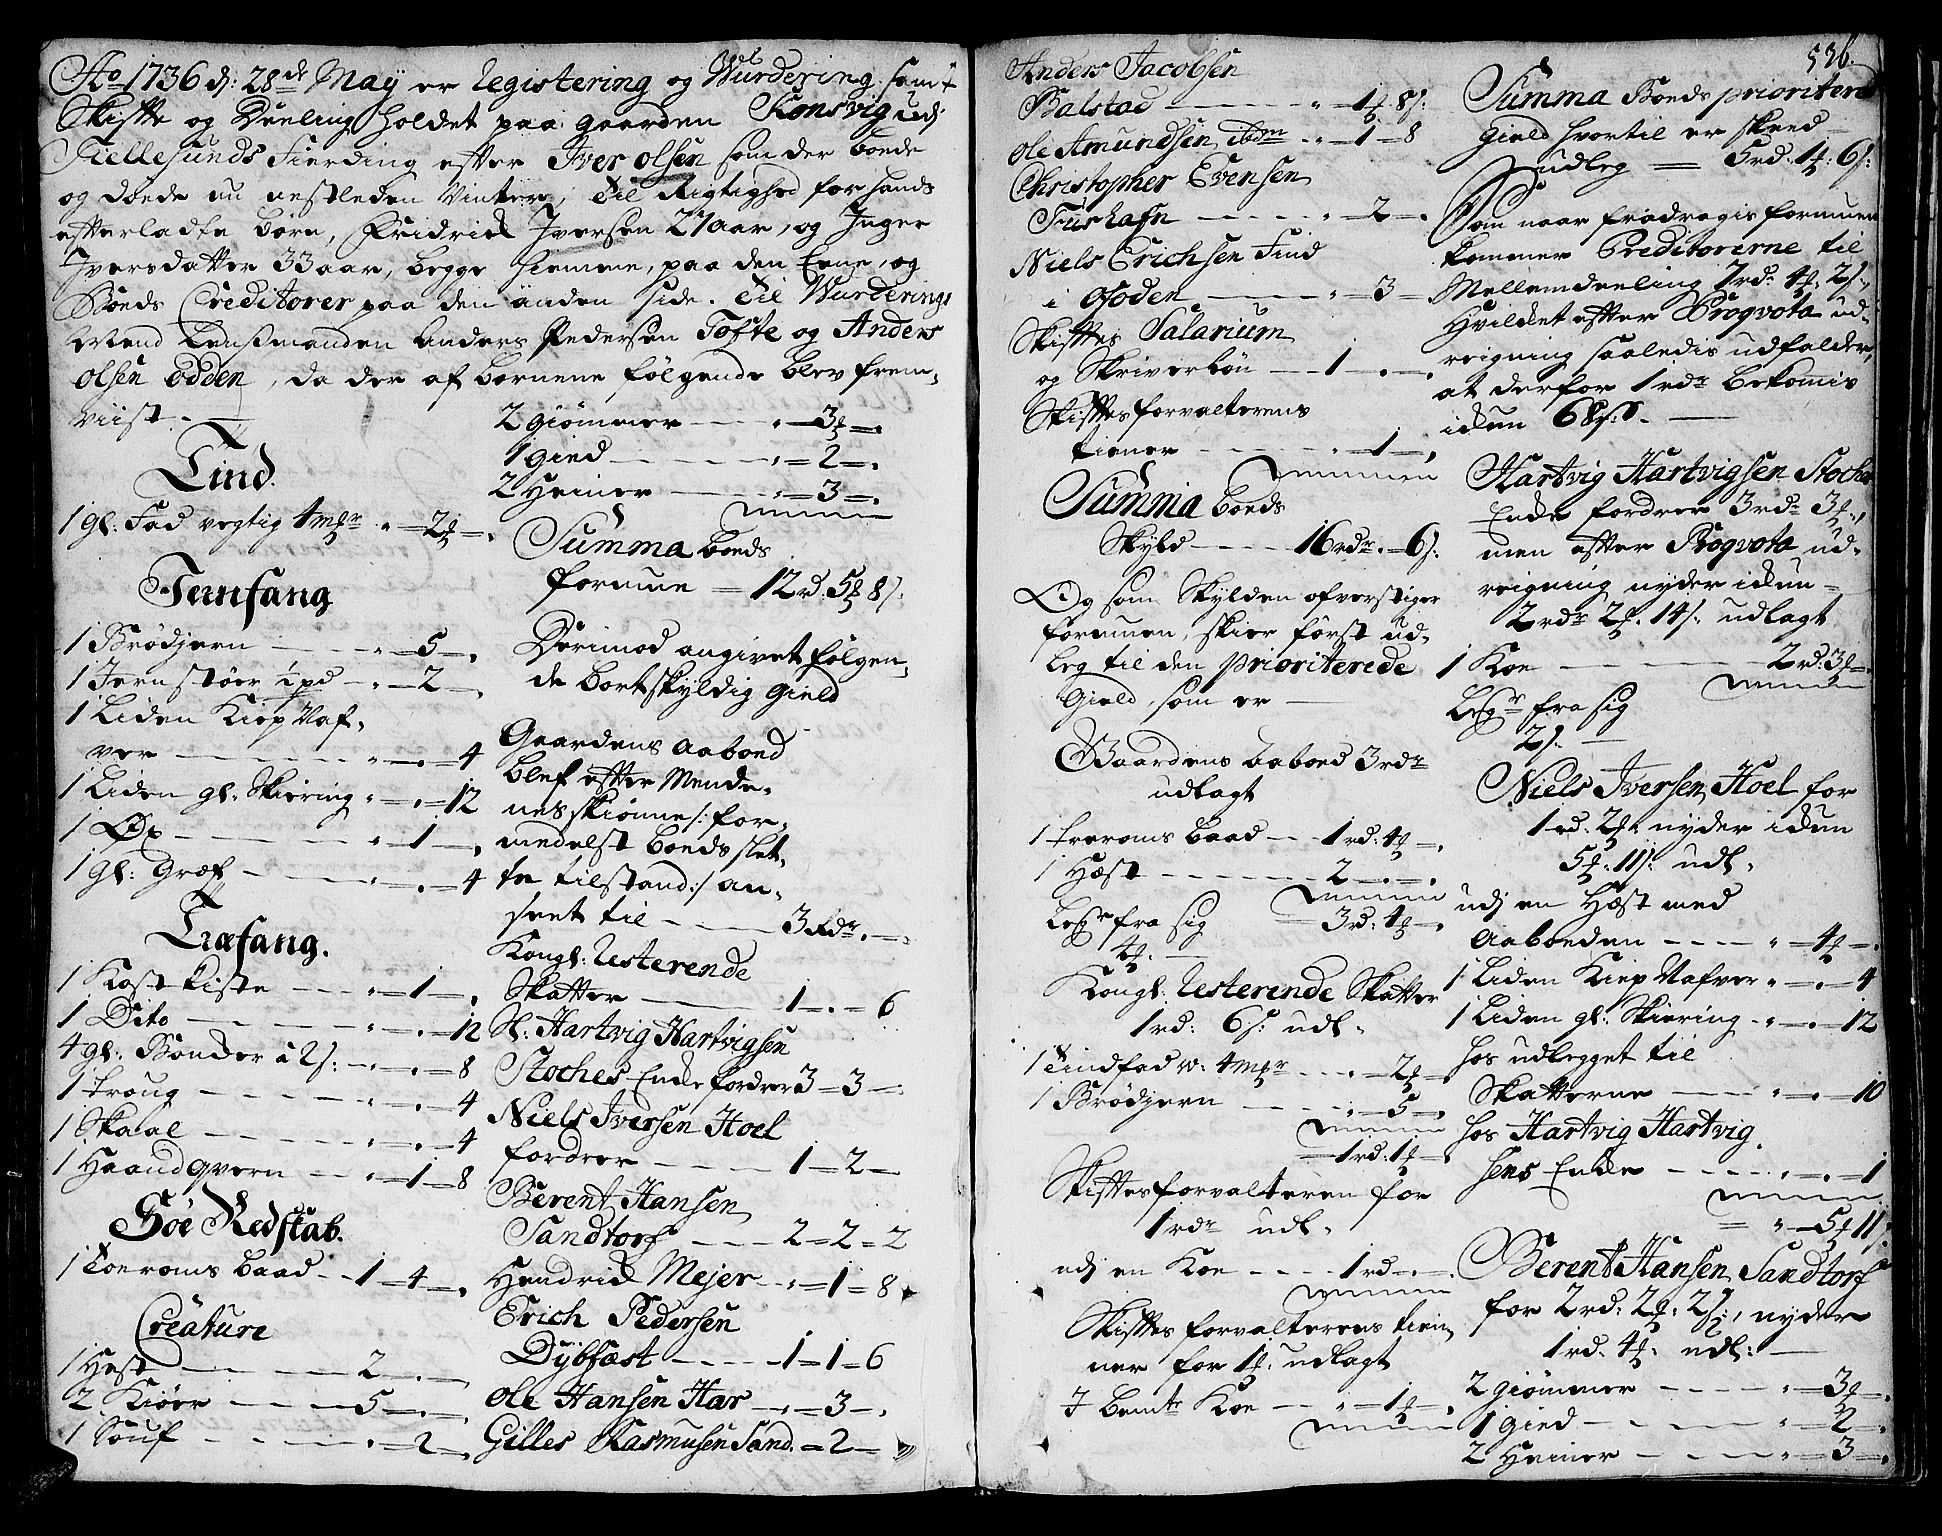 Ao 1736 d: 28de Maÿ er Registering og Wurdering samt
Skifte og Deeling holdet paa gaarden Konsvig udj
Tiellesunds Fierding efter Iver olsen som der boede
og döede nu nestleden Vinter, Til Rigtighed for hands
efterladte börn, Fridrich Iversen 27 aar, og Inger
Iversdatter 33 aar, begge hiemme, paa den Eene, og
Boeds Creditorer paa den anden side. Til Wurderings
Mend Lensmanden Anders Pedersen Tofte og Anders
olsen ödden, da der af börnene fölgende blev frem,
viist.
Tind.
1 gl: Fad vegtig 4 mkr " = 2 = .
Jernfang
1 Brödjern - - " = 5 = .
1 Jern stöer ipd - " = 2 = .
1 Liden Kiep Naf,
ver - - " = . = 4
1 Liden gl: Skiering " = . = 12
1 Öx - - " = 1 = .
1 gl: Græf - - " = . = 4
Træfang.
1 Kost kiste - - " = 1 = .
1 Dito - - " = . = 12
4 gl: Bönder à 2 s: - " = . = 8
1 troug - - " = . = 4
1 Skaal - - " = . = 4
1 Haandqvern - - " = 1 = 8
Söe Redskab.
1 toeroms baad - - 1 = 4 = .
Creature
1 Hest - - 2 = . = .
2 Kiöer - - 5 = . = .
1 Souf - - " = 2 = .
2 giömmer - - " = 3 = .
1 gied - - " = 2 = .
2 Heiner - - " = 3 = .
Summa boeds
formue = 12 rd. 5 8 s:
Derimod angivet fölgen,
de bortskyldig gield
Gaardens Aaboed
blef efter Mende,
nes skiönne /: for,
medelst boeds slet,
te tilstand :/ an,
seet til - - 3 Rdr. = .
Kongl: Resterende
Skatter - - 1 = . = 6
Sl: Hartvig Hartvigsen
Stoches Encke fordrer 3 = 3 = .
Niels Iversen Hoel
fordrer - - 1 = 2 =
Berent Hansen
Sandtorf - - 2 = 2 = 2
Hendrich Mejer - " = 1 = 8
Erich Pedersen
Dÿbfæst - - 1 = 1 = 6
Ole Hansen Har - " = 3 = .
Gilles Rasmusen Sand. = 2 =
536.
Anders Jacobsen
Balstad - - " = 1 8 s:
Ole Amundsen ibdm " = 1 = 8
Christopher Evensen
Fuushafn - - " = 2 = .
Niels Erichsen Find
i Ofoden - - " = 3 =
Skiftes Salarium
og Skriverlön - - 1 = . = .
Skiftesforvalterens
tiener - - " = 1 = .
Summa boeds
Skyld - - 16 rdr. = 6 s:
Og som Skylden ofverstiger
formuen, skier först ud,
leg til den prioriterede
Gield, som er -
Gaardens Aaboed 3 rdr
udlagt
1 toeroms baad - - 1 rd: 4 = .
1 Hæst - - 2 = . = .
= 3 rd: 4 = .
legr fra sig
4
Kongl: Resterende Skatter
1 rd: 6 s: udl.
1 Tindfad w: 4 mkr - - " = 2 =
1 Brödjern - - " = 5 = .
= 1 rd: 1 = .
Skiftesforvalteren for
1 rdr udl.
udj en Koe - - 1 rd = . = .
Skiftesforvalterens tien,
ner for 1 udlagt
I bemte Koe - - " = 1 = .
Summa Boeds prioriterede
Gield hvortil er skeed
udleg = 5 rd. 1: 6 s:
Som naar fradragis formuen
kommer Creditorerne til
Mellemdeeling 7 rd. 4. 2 s.,
Hvilcket efter Proqvota ud,
reigning saaledis udfalder,
at derfor 1 rdr bekomis
ickun 68 s.
Hartvig Hartvigsen Stoches
Encke fordrer 3 rdr 3,
men efter Proqvota ud,
reigning nyder ickun =
2 rdr 2. 14 s: udlagt
1 Koe - - 2 rd: 3 = .
legr fra sig
2 s:
Niels Iversen Hoel for
1 rd. 2. nyder ickun
5. 11 s: udl.
udj en Hæst med
Aaboeden - - " = 4 = .
1 Liden Kiep Nafver " = . = 4
1 Liden gl: Skiering - " = . = 12
hos udlegget til
Skatterne - - " = . = 10
hos Hartvig Hartvig,
sens Encke - - " = . = 1
= " = 5 11 s:
Berent Hansen Sandtorf
for 2 rd: 2: 2 s:, nyder
1 rd. 4: udl:
2 giömmer - - " = 3 = .
1 gied - - " = 2 = .
2 Heiner - - " = 3 = .